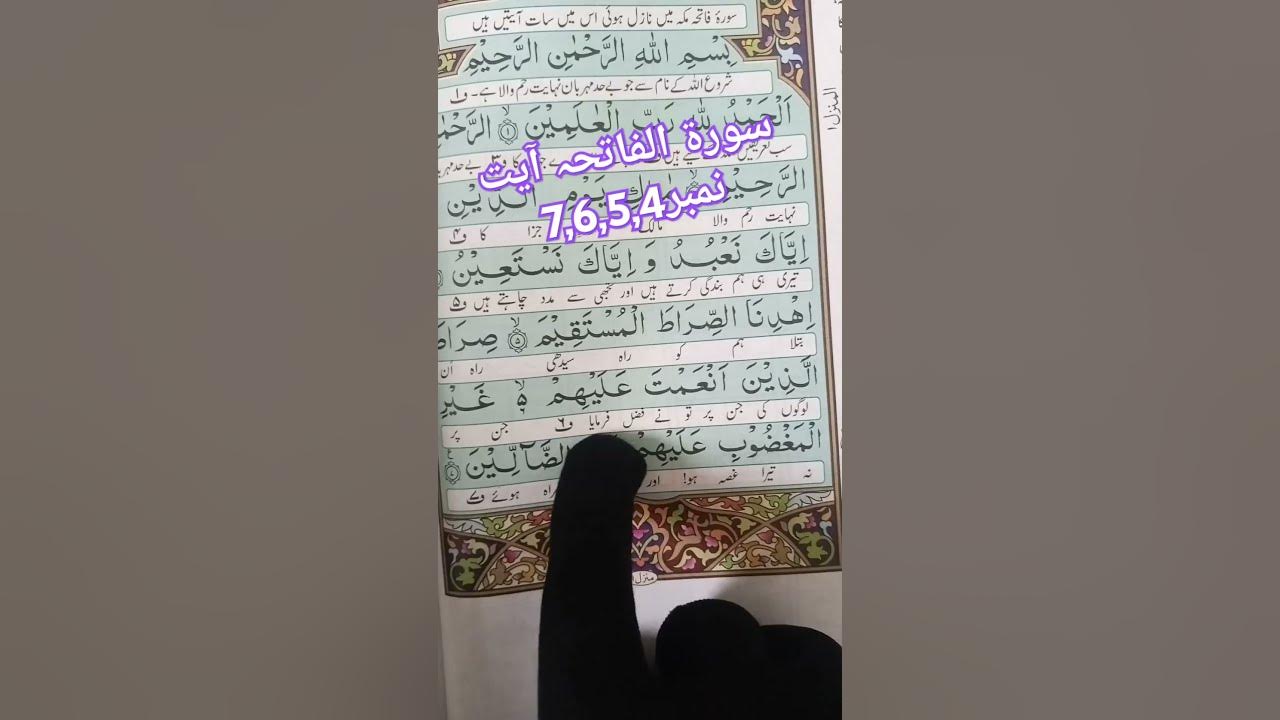 سورۂ فاتحہ مکہ میں نازل ہوئی اس میں سات آیتیں ہیں
بِسْمِ اللهِ الرَّحْمٰنِ الرَّحِيْمِ
شروع اللہ کے نام سے جو بے حد مہربان نہایت رحم والا ہے۔ ف۱
اَلْحَمْدُ لِلّٰهِ رَبِّ الْعٰلَمِيْنَ ۙ﴿۱﴾ الرَّحْمٰ
سب تعریفیں
سورۃ الفاتحہ آیت
نمبر7,6,5,4
الرَّحِيْمِ مٰلِكِ يَوْمِ الدِّيْنِ
نہایت رحم والا مالک جزا کا ف۴
اِيَّاكَ نَعْبُدُ وَ اِيَّاكَ نَسْتَعِيْنُ
تیری ہی ہم بندگی کرتے ہیں اور تجھی سے مدد چاہتے ہیں ف۵
اِهْدِنَا الصِّرَاطَ الْمُسْتَقِيْمَ ۙ﴿۵﴾ صِرَاطَ
بتلا ہم کو راہ سیدھی راہ اُن
الَّذِيْنَ اَنْعَمْتَ عَلَيْهِمْ ۙ۬ غَيْرِ
لوگوں کی جن پر تو نے فضل فرمایا ف۶ جن پر
الْمَغْضُوْبِ عَلَيْهِمْ الضَّآلِّيْنَ
نہ تیرا غصہ ہوا اور راہ ہوئے ف۷
المنزل۱
منزل۱